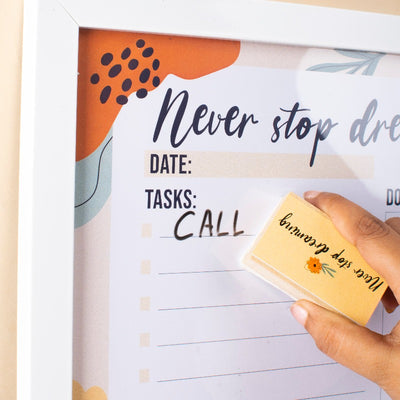 Never stop dre
DATE:
TASKS:
DO
CALL
Never stop dreaming